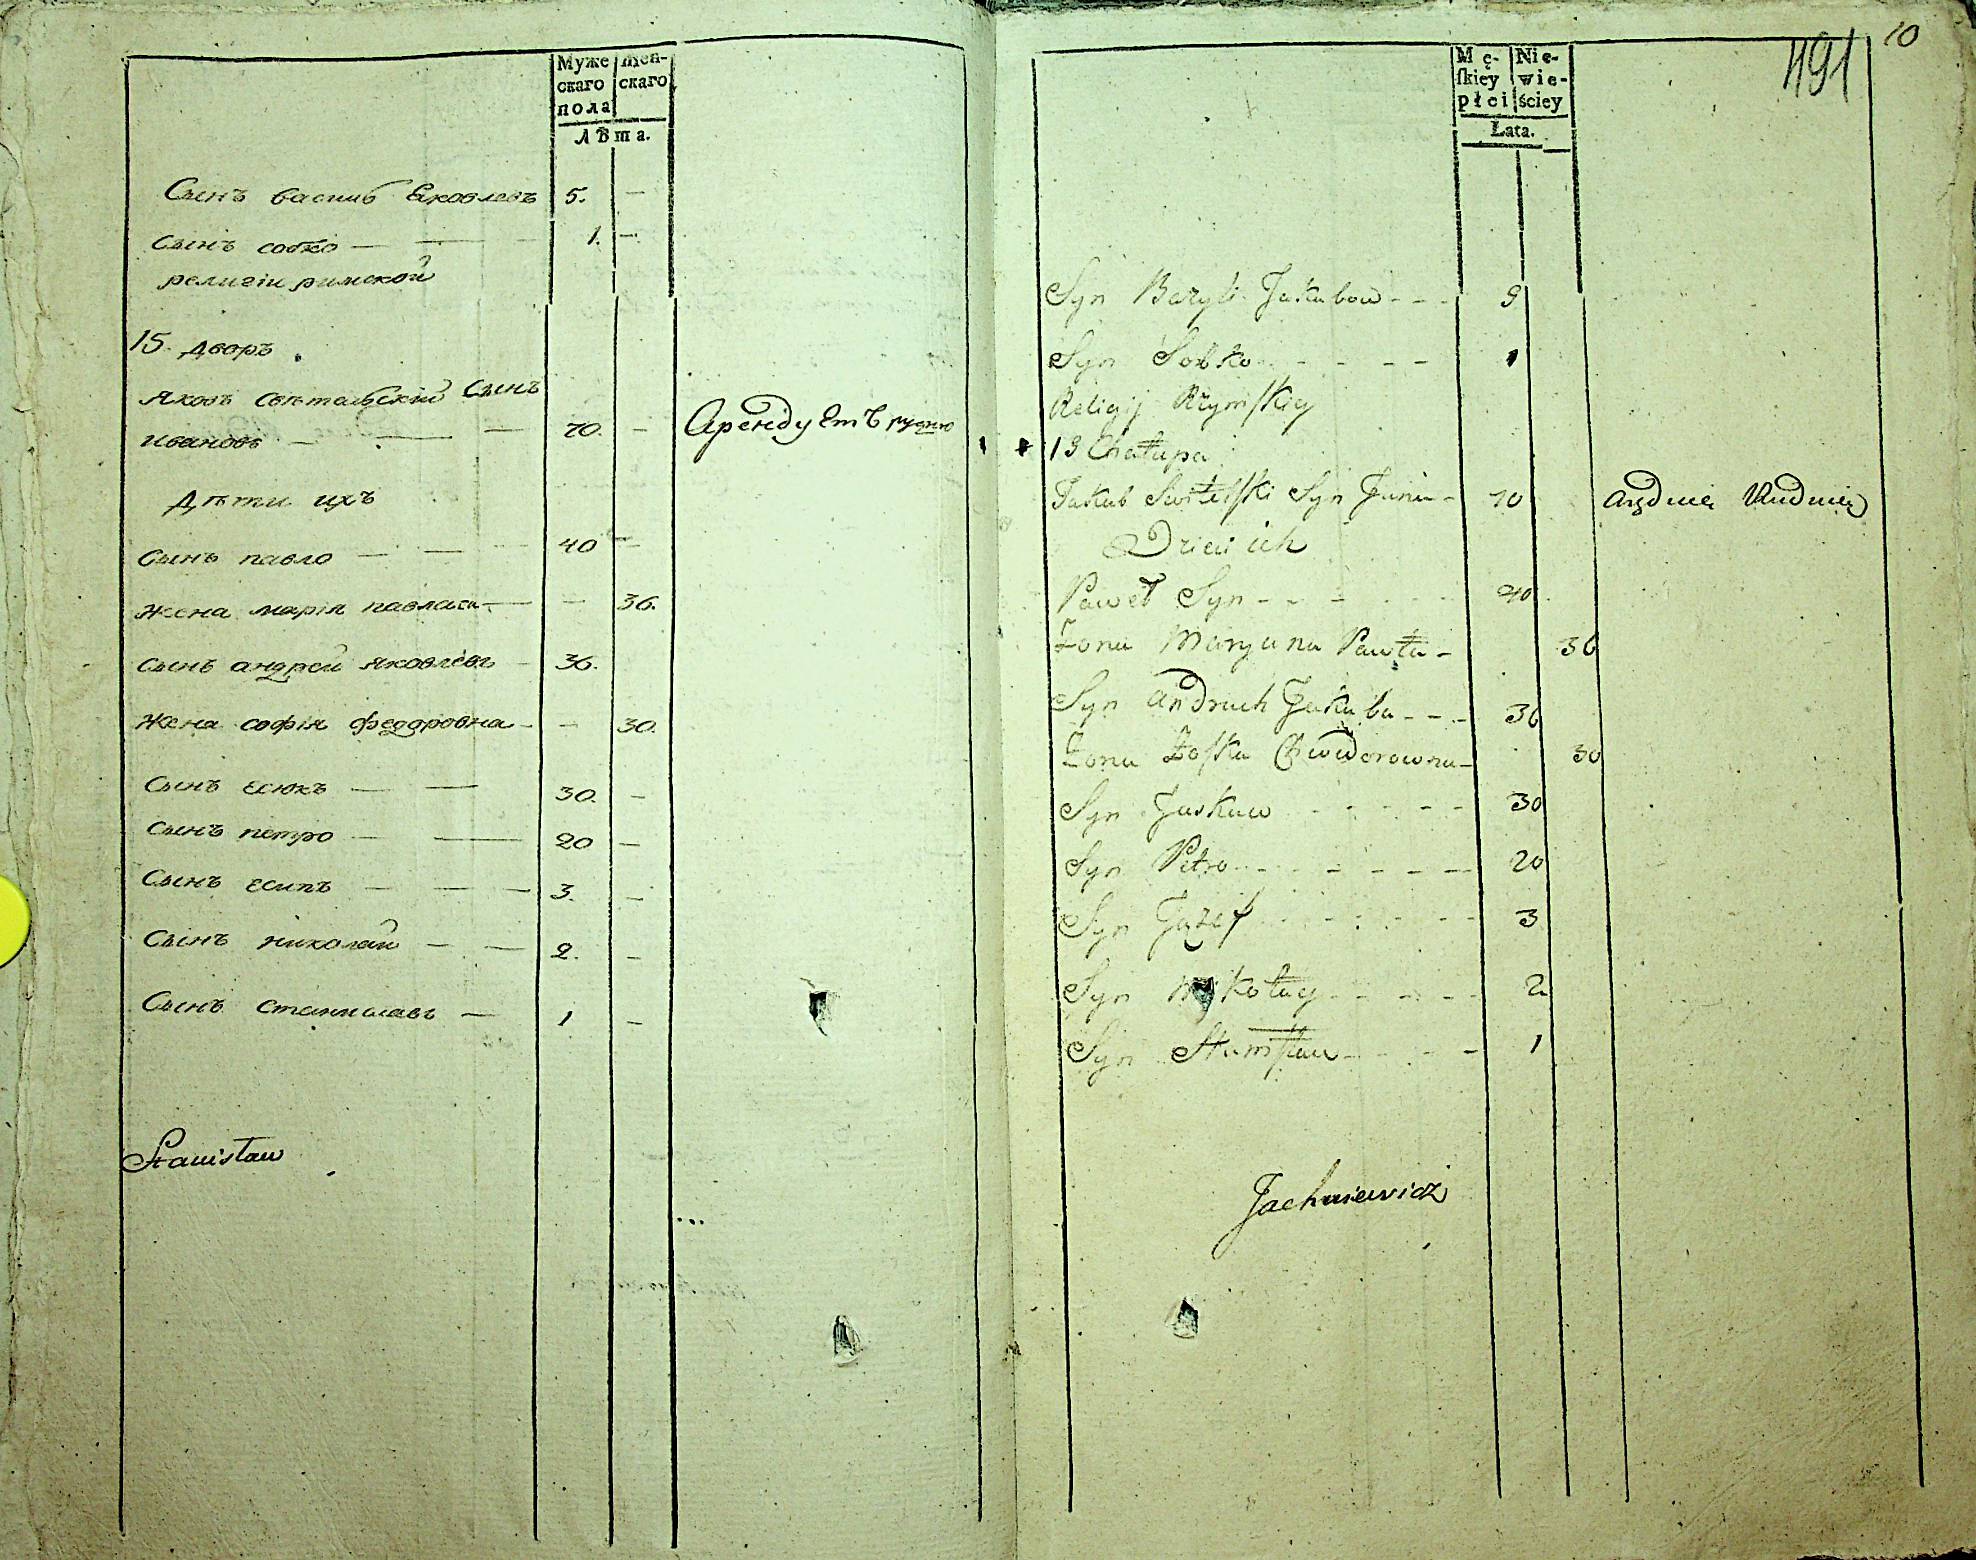 Муже
скаго
пола
Жен-
скаго
Лѣта.
Сынъ василь Яковлевъ 5. —
Сынъ собко — 1. —
религіи римской
15. дворъ
яковъ свѣтельскій Сынъ
ивановъ — 70. — Арендуетъ рудню
Дѣти ихъ
Сынъ павло — 40 —
Жена марія павласа — 36.
Сынъ андрей яковлевъ — 36.
Жена софія феодоровна — 30.
Сынъ есюкъ — 30. —
Сынъ петро — 20 —
Сынъ есипъ — 3. —
Сынъ николай — 2. —
Сынъ станиславъ — 1 —
Stanisław
491
10
Mę-
skiey
płci
Nie-
wie-
ściey
Lata.
Syn Bazyli Jakubow - - - 5
Syn Sobko - - - 1
Religij Rzymskiey
15 Chałupa
Jakub Switelski Syn Jana - 70
Dzieci ich
Paweł Syn - - - 40
Żona Maryana Pawła - 36
Syn Andruch Jakuba - - - 36
Żona Zoska Chwedorowna - 30
Syn - - - 30
Syn Petro - - - 20
Syn Jozef - - - 3
Syn Mikołay - - - 2
Syn Stanisław - - - 1
Jachniewicz